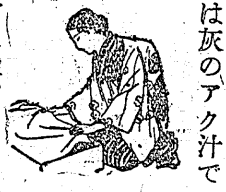 は灰のアク汁で